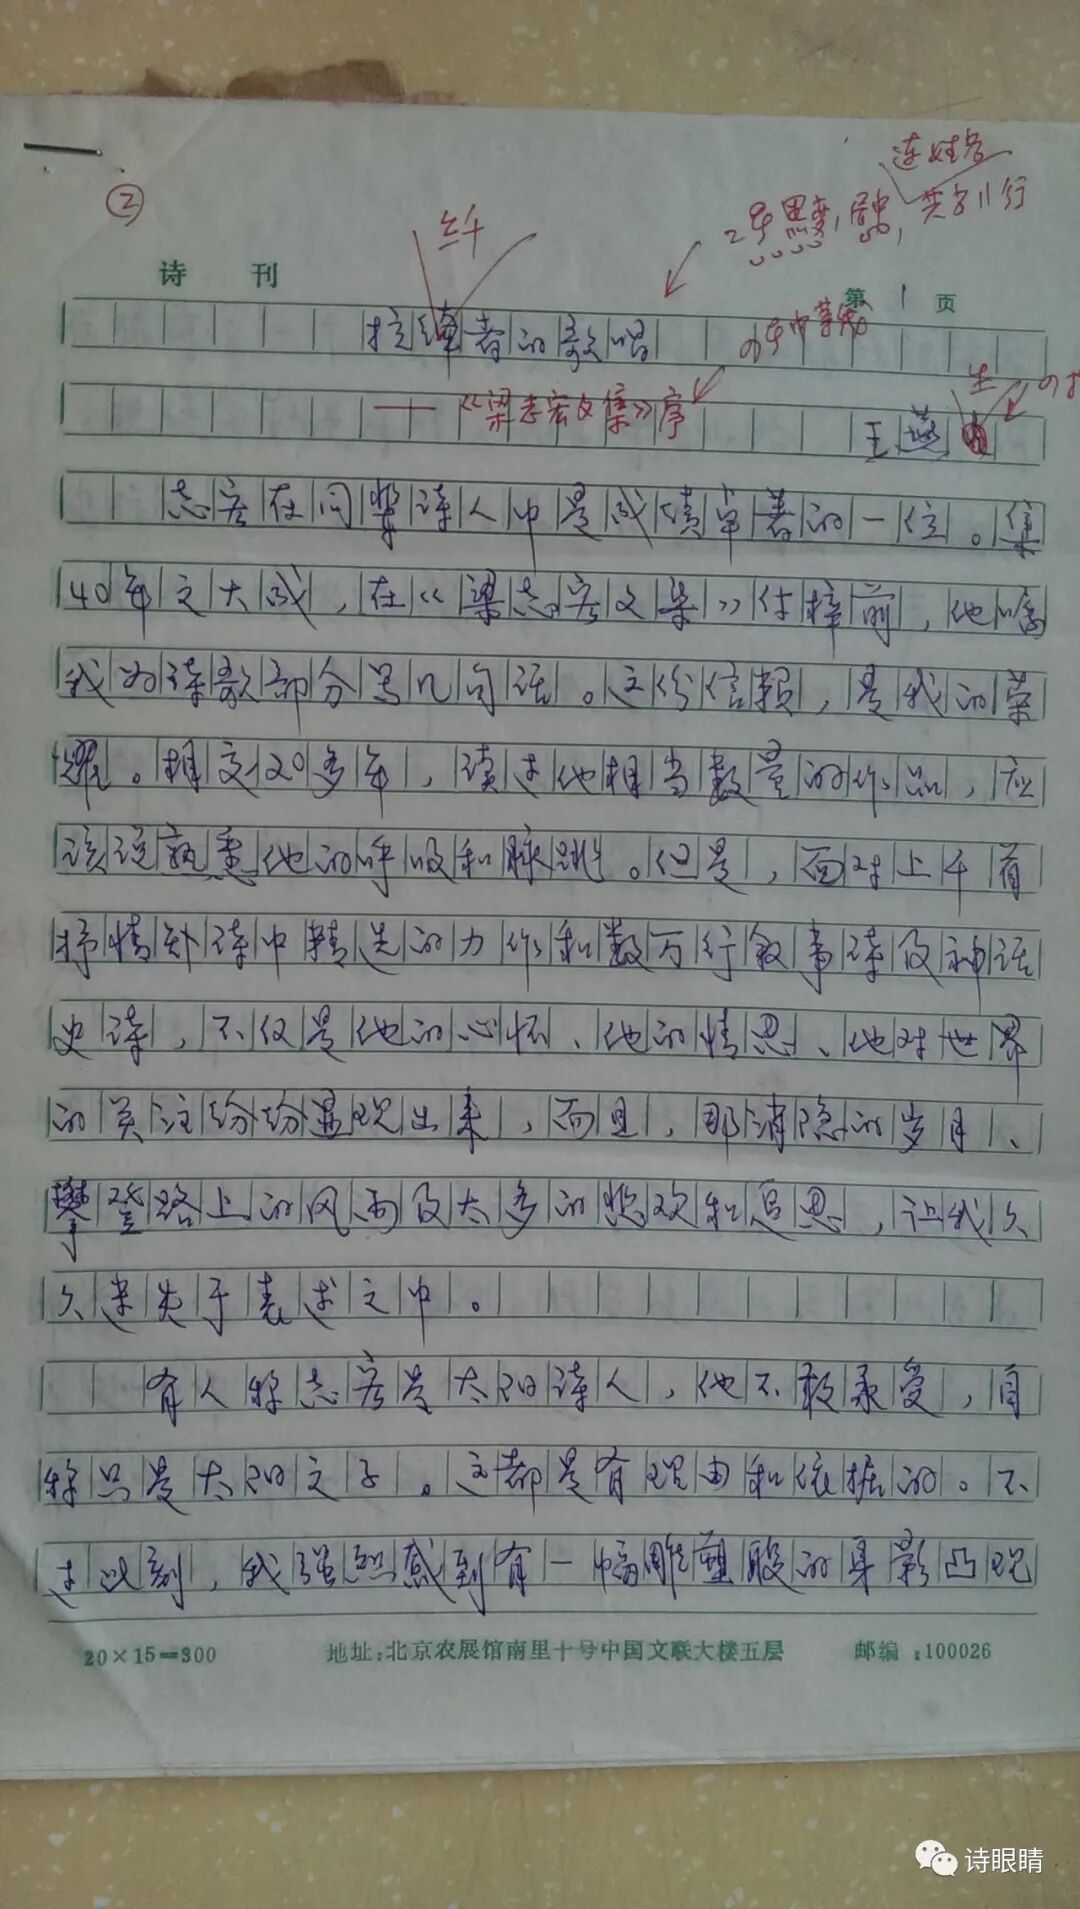 ②
连姓名
纤
2号黑变,居中,共占11行
诗刊
第1页
拉繂者的歌唱
——《梁志宏文集》序
王燕生
志宏在同辈诗人中是成绩卓著的一位。集
40年之大成,在《梁志宏文集》付梓前,他嘱
我为诗歌部分写几句话。这份信赖,是我的荣
耀。相交20多年,读过他相当数量的作品,应
该说熟悉他的呼吸和脉跳。但是,面对上千首
抒情短诗中精选的力作和数万行叙事诗及神话
史诗,不仅是他的心怀、他的情思、他对世界
的关注纷纷显现出来,而且,那消隐的岁月、
攀登路上的风雨及太多的悲欢和追思,让我久
久迷失于表述之中。
有人称志宏是太阳诗人,他不敢承受,自
称只是太阳之子。这都是有理由和依据的。不
过此刻,我强烈感到有一幅雕塑般的身影凸现
20×15=300 地址:北京农展馆南里十号中国文联大楼五层 邮编:100026
诗眼睛